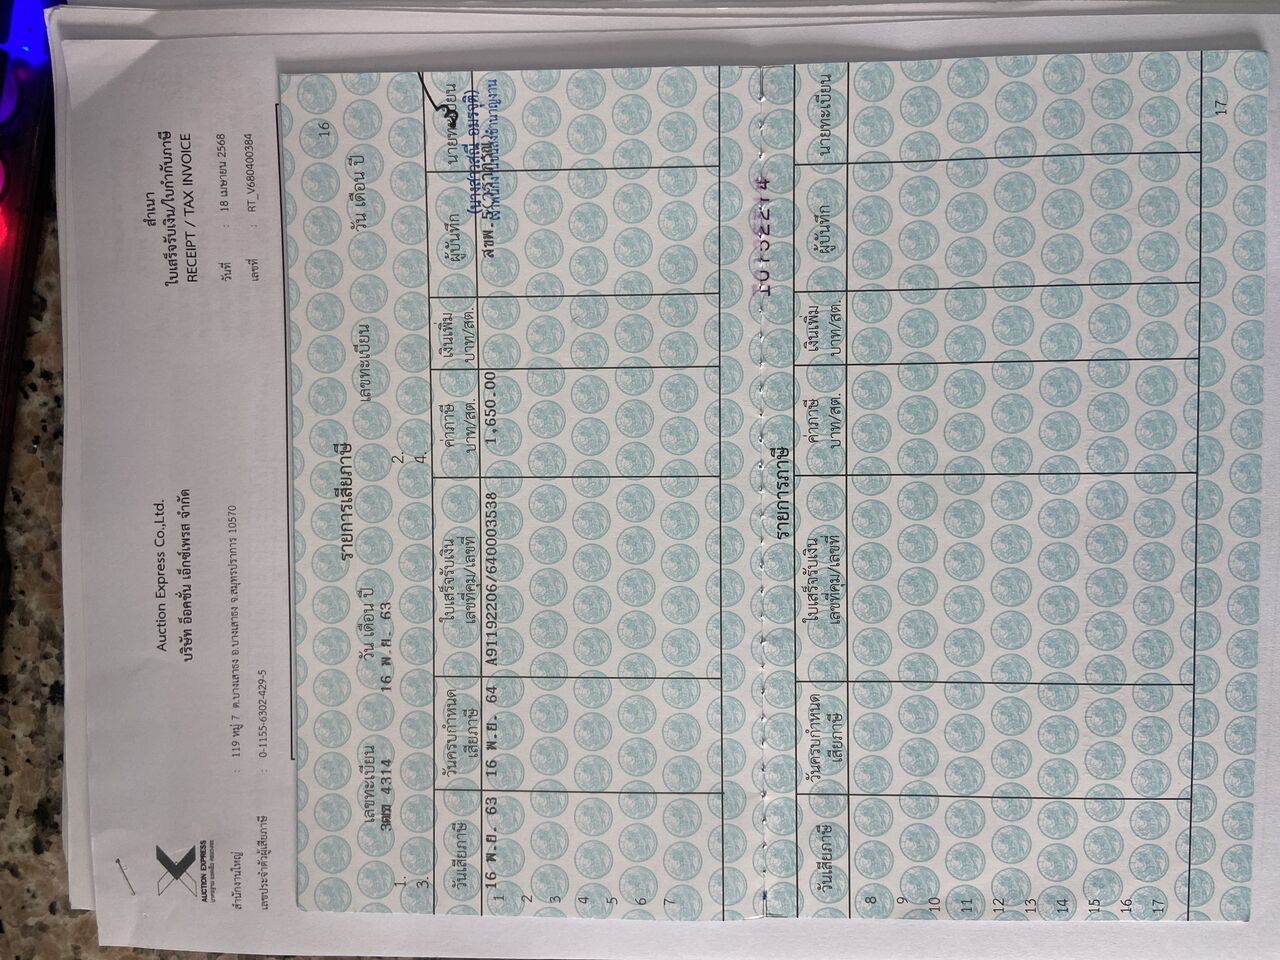 สำเนา
ใบเสร็จรับเงิน/ใบกำกับภาษี
RECEIPT / TAX INVOICE
วันที่ : 18 เมษายน 2568
เลขที่ : RT_V680400384
Auction Express Co.,Ltd.
บริษัท อ็อคชั่น เอ็กซ์เพรส จำกัด
AUCTION EXPRESS
สำนักงานใหญ่ : 119 หมู่ 7 ต.บางเสาธง อ.บางเสาธง จ.สมุทรปราการ 10570
เลขประจำตัวผู้เสียภาษี : 0-1155-6302-429-5
16
รายการเสียภาษี
เลขทะเบียน วัน เดือน ปี เลขทะเบียน วัน เดือน ปี
1. 4314 16 พ.ย. 63 2.
3. 4.
วันเสียภาษี วันครบกำหนดเสียภาษี ใบเสร็จรับเงิน เลขที่คุม/เลขที่ ค่าภาษี บาท/สต. เงินเพิ่ม บาท/สต. ผู้บันทึก นายทะเบียน
1 16 พ.ย. 63 16 พ.ย. 64 A91192206/640003538 1,650.00
2
3
4
5
6
7
รายการภาษี
วันเสียภาษี วันครบกำหนดเสียภาษี ใบเสร็จรับเงิน เลขที่คุม/เลขที่ ค่าภาษี บาท/สต. เงินเพิ่ม บาท/สต. ผู้บันทึก นายทะเบียน
8
9
10
11
12
13
14
15
16
17
17